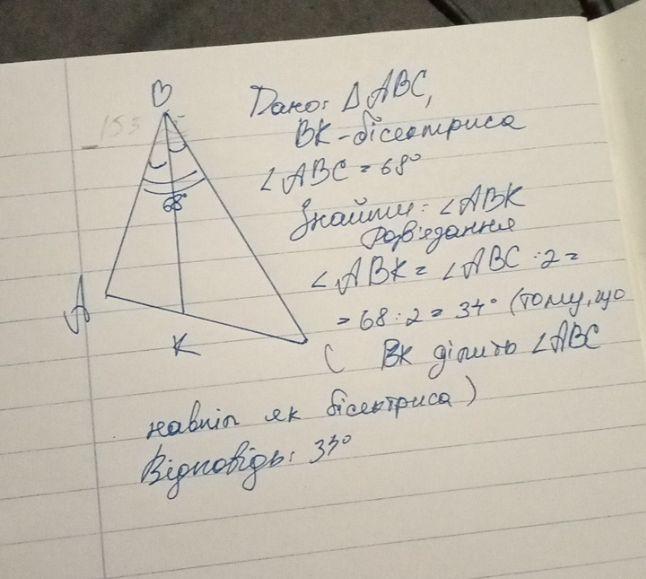 B
Дано: Δ ABC,
BK - бісектриса
∠ABC = 68°
68°
Знайти: ∠ABK
Розв'язання
∠ABK = ∠ABC : 2 =
= 68 : 2 = 34° (тому, що
A
K
C
BK ділить ∠ABC
навпіл як бісектриса)
Відповідь: 34°